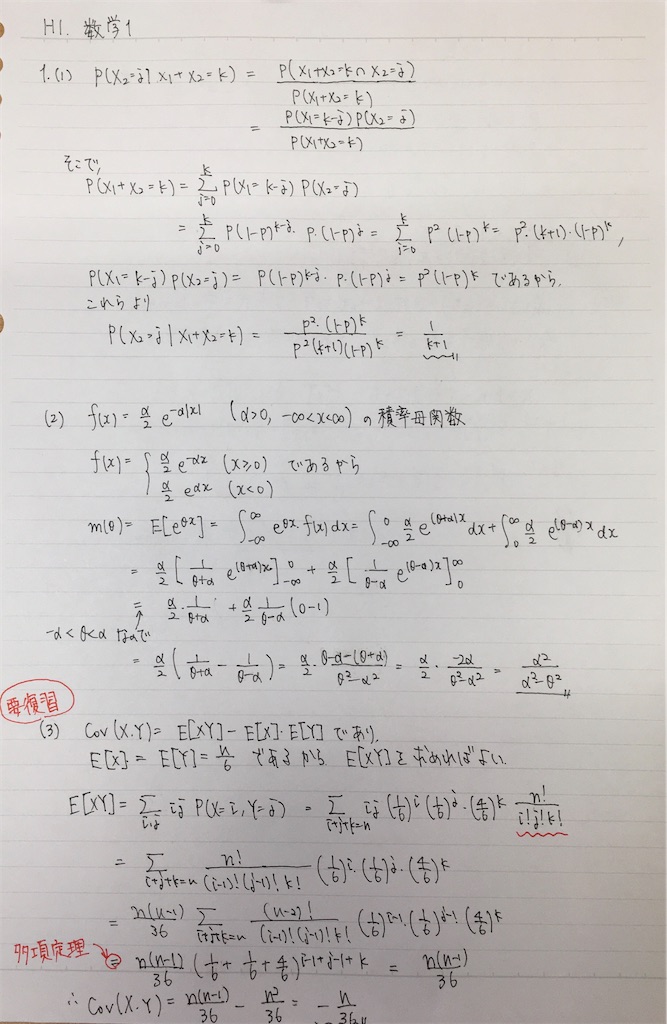 H1. 数学1
1.(1) P(X₂=j | X₁+X₂=k) = P(X₁+X₂=k ∩ X₂=j) / P(X₁+X₂=k)
= P(X₁=k-j) P(X₂=j) / P(X₁+X₂=k)
そこで,
P(X₁+X₂=k) = Σ_{j=0}^{k} P(X₁=k-j) P(X₂=j)
= Σ_{j=0}^{k} P(1-P)^{k-j} · P·(1-P)^j = Σ_{j=0}^{k} P²(1-P)^k = P²·(k+1)·(1-P)^k,
P(X₁=k-j) P(X₂=j) = P(1-P)^{k-j} · P·(1-P)^j = P²(1-P)^k であるから,
これらより
P(X₂=j | X₁+X₂=k) = P²·(1-P)^k / P²(k+1)(1-P)^k = 1/(k+1)
(2) f(x) = α/2 e^{-α|x|} (α>0, -∞<x<∞) の積率母関数
f(x) = { α/2 e^{-αx} (x≥0) であるから
α/2 e^{αx} (x<0)
m(θ) = E[e^{θx}] = ∫_{-∞}^{∞} e^{θx}·f(x)dx = ∫_{-∞}^{0} α/2 e^{(θ+α)x} dx + ∫_{0}^{∞} α/2 e^{(θ-α)x} dx
= α/2 [ 1/(θ+α) e^{(θ+α)x} ]_{-∞}^{0} + α/2 [ 1/(θ-α) e^{(θ-α)x} ]_{0}^{∞}
= α/2 · 1/(θ+α) + α/2 1/(θ-α) (0-1)
-α<θ<α なので
= α/2 ( 1/(θ+α) - 1/(θ-α) ) = α/2 · (θ-α-(θ+α))/(θ²-α²) = α/2 · -2α/(θ²-α²) = α²/(α²-θ²)
要復習
(3) Cov(X.Y) = E[XY] - E[X]·E[Y] であり,
E[X] = E[Y] = n/6 であるから E[XY]を求めればよい.
E[XY] = Σ_{i,j} ij P(X=i, Y=j) = Σ_{i+j+k=n} ij (1/6)^i (1/6)^j · (4/6)^k n!/(i!j!k!)
= Σ_{i+j+k=n} n!/((i-1)!(j-1)!k!) (1/6)^i · (1/6)^j · (4/6)^k
= n(n-1)/36 Σ_{i+j+k=n} (n-2)!/((i-1)!(j-1)!k!) (1/6)^{i-1} · (1/6)^{j-1} (4/6)^k
多項定理
= n(n-1)/36 (1/6 + 1/6 + 4/6)^{i-1+j-1+k} = n(n-1)/36
∴ Cov(X.Y) = n(n-1)/36 - n²/36 = - n/36